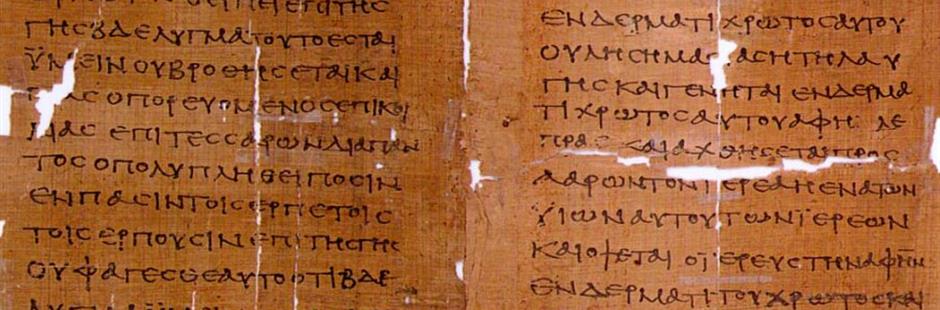 ΓΗϹΒΔΕΛΥΓΜΑΤΟΥΤΟΕϹΤΑΙ
ΫΜΕΙΝΟΥΒΡΟΘΗϹΕΤΑΙΚΑΙ
ΑϹΟΠΟΡΕΥΟΜΕΝΟϹΕΠΙΚΟΙ
ΛΙΑϹΕΠΙΤΕϹϹΑΡΩΝΔΙΑΠΑΝ
ΤΟϹΟΠΟΛΥΠΛΗΘΕΙΠΟϹΙΝ
ΕΝΠΑϹΙΝΤΟΙϹΕΡΠΕΤΟΙϹ
ΤΟΙϹΕΡΠΟΥϹΙΝΕΠΙΤΗϹΓΗϹ
ΟΥΦΑΓΕϹΘΕΑΥΤΟΟΤΙΒΔΕ
ΕΝΔΕΡΜΑΤΙΧΡΩΤΟϹΑΥΤΟΥ
ΟΥΛΗϹΗΜΑϹΑϹΗΤΗΛΑΥ
ΓΗϹΚΑΙΓΕΝΗΤΑΙΕΝΔΕΡΜΑ
ΤΙΧΡΩΤΟϹΑΥΤΟΥΑΦΗΛΕ
ΠΡΑϹΚΑΙΑΧΘΗϹΕΤΑΙΠΡΟϹ
ΑΑΡΩΝΤΟΝΙΕΡΕΑΗΕΝΑΤΩΝ
ΫΙΩΝΑΥΤΟΥΤΩΝΪΕΡΕΩΝ
ΚΑΙΟΨΕΤΑΙΟΪΕΡΕΥϹΤΗΝΑΦΗΝ
ΕΝΔΕΡΜΑΤΙΤΟΥΧΡΩΤΟϹΚΑΙ